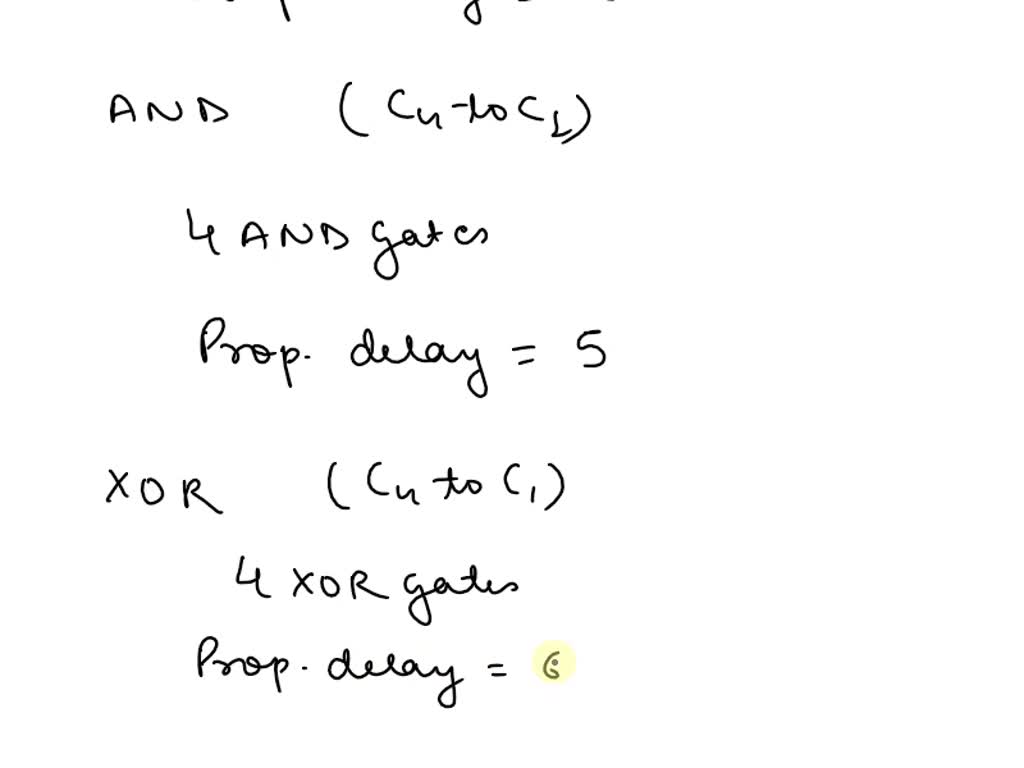 AND (C4 to C1)
4 AND gates
Prop. delay = 5
XOR (C4 to C1)
4 XOR gates
Prop. delay = 6